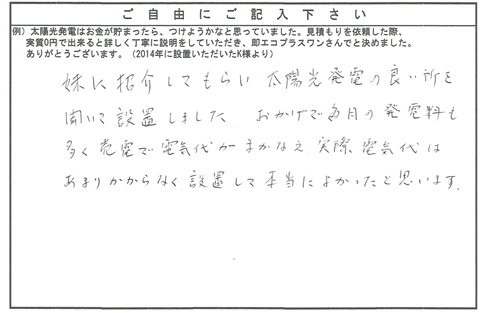 ご自由にご記入下さい
例）太陽光発電はお金が貯まったら、つけようかなと思っていました。見積もりを依頼した際、
実質0円で出来ると詳しく丁寧に説明をしていただき、即エコプラスワンさんでと決めました。
ありがとうございます。（2014年に設置いただいたK様より）
妹に紹介してもらい 太陽光発電の良い所を
聞いて設置しました おかげで毎月の発電料も
多く売電で電気代がまかなえ 実際、電気代は
あまりかからなく設置して本当によかったと思います.